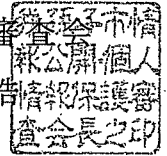 審査会
告
子市情
報公開個人
情報保護審
査会長之印